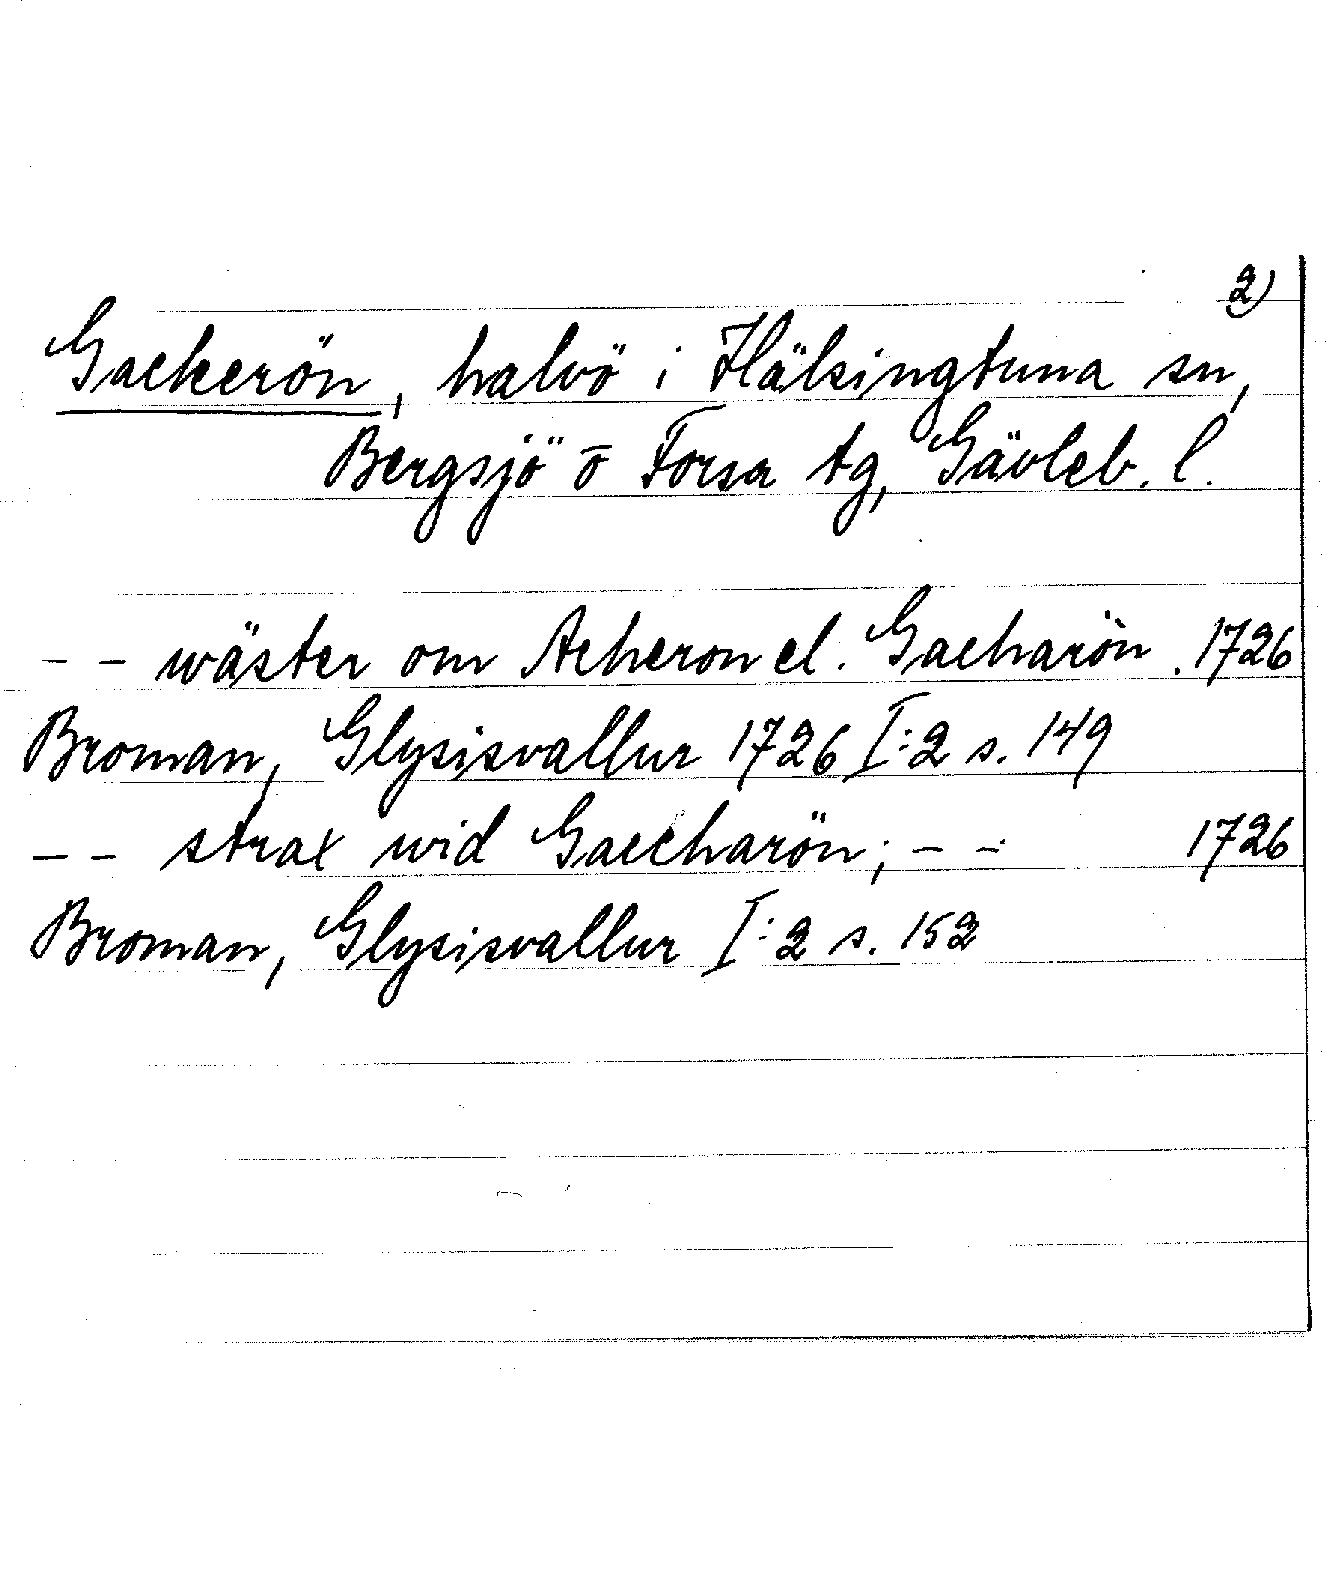 2)
Gackerön, halvö i Hälsingtuna sn,
Bergsjö o Forsa tg, Gävleb. l.
-- wäster om Acheron el. Gacharön . 1726
Broman, Glysisvallur 1726 I:2 s. 149
-- strax wid Gaccharön; -- 1726
Broman, Glysisvallur I:2 s. 152